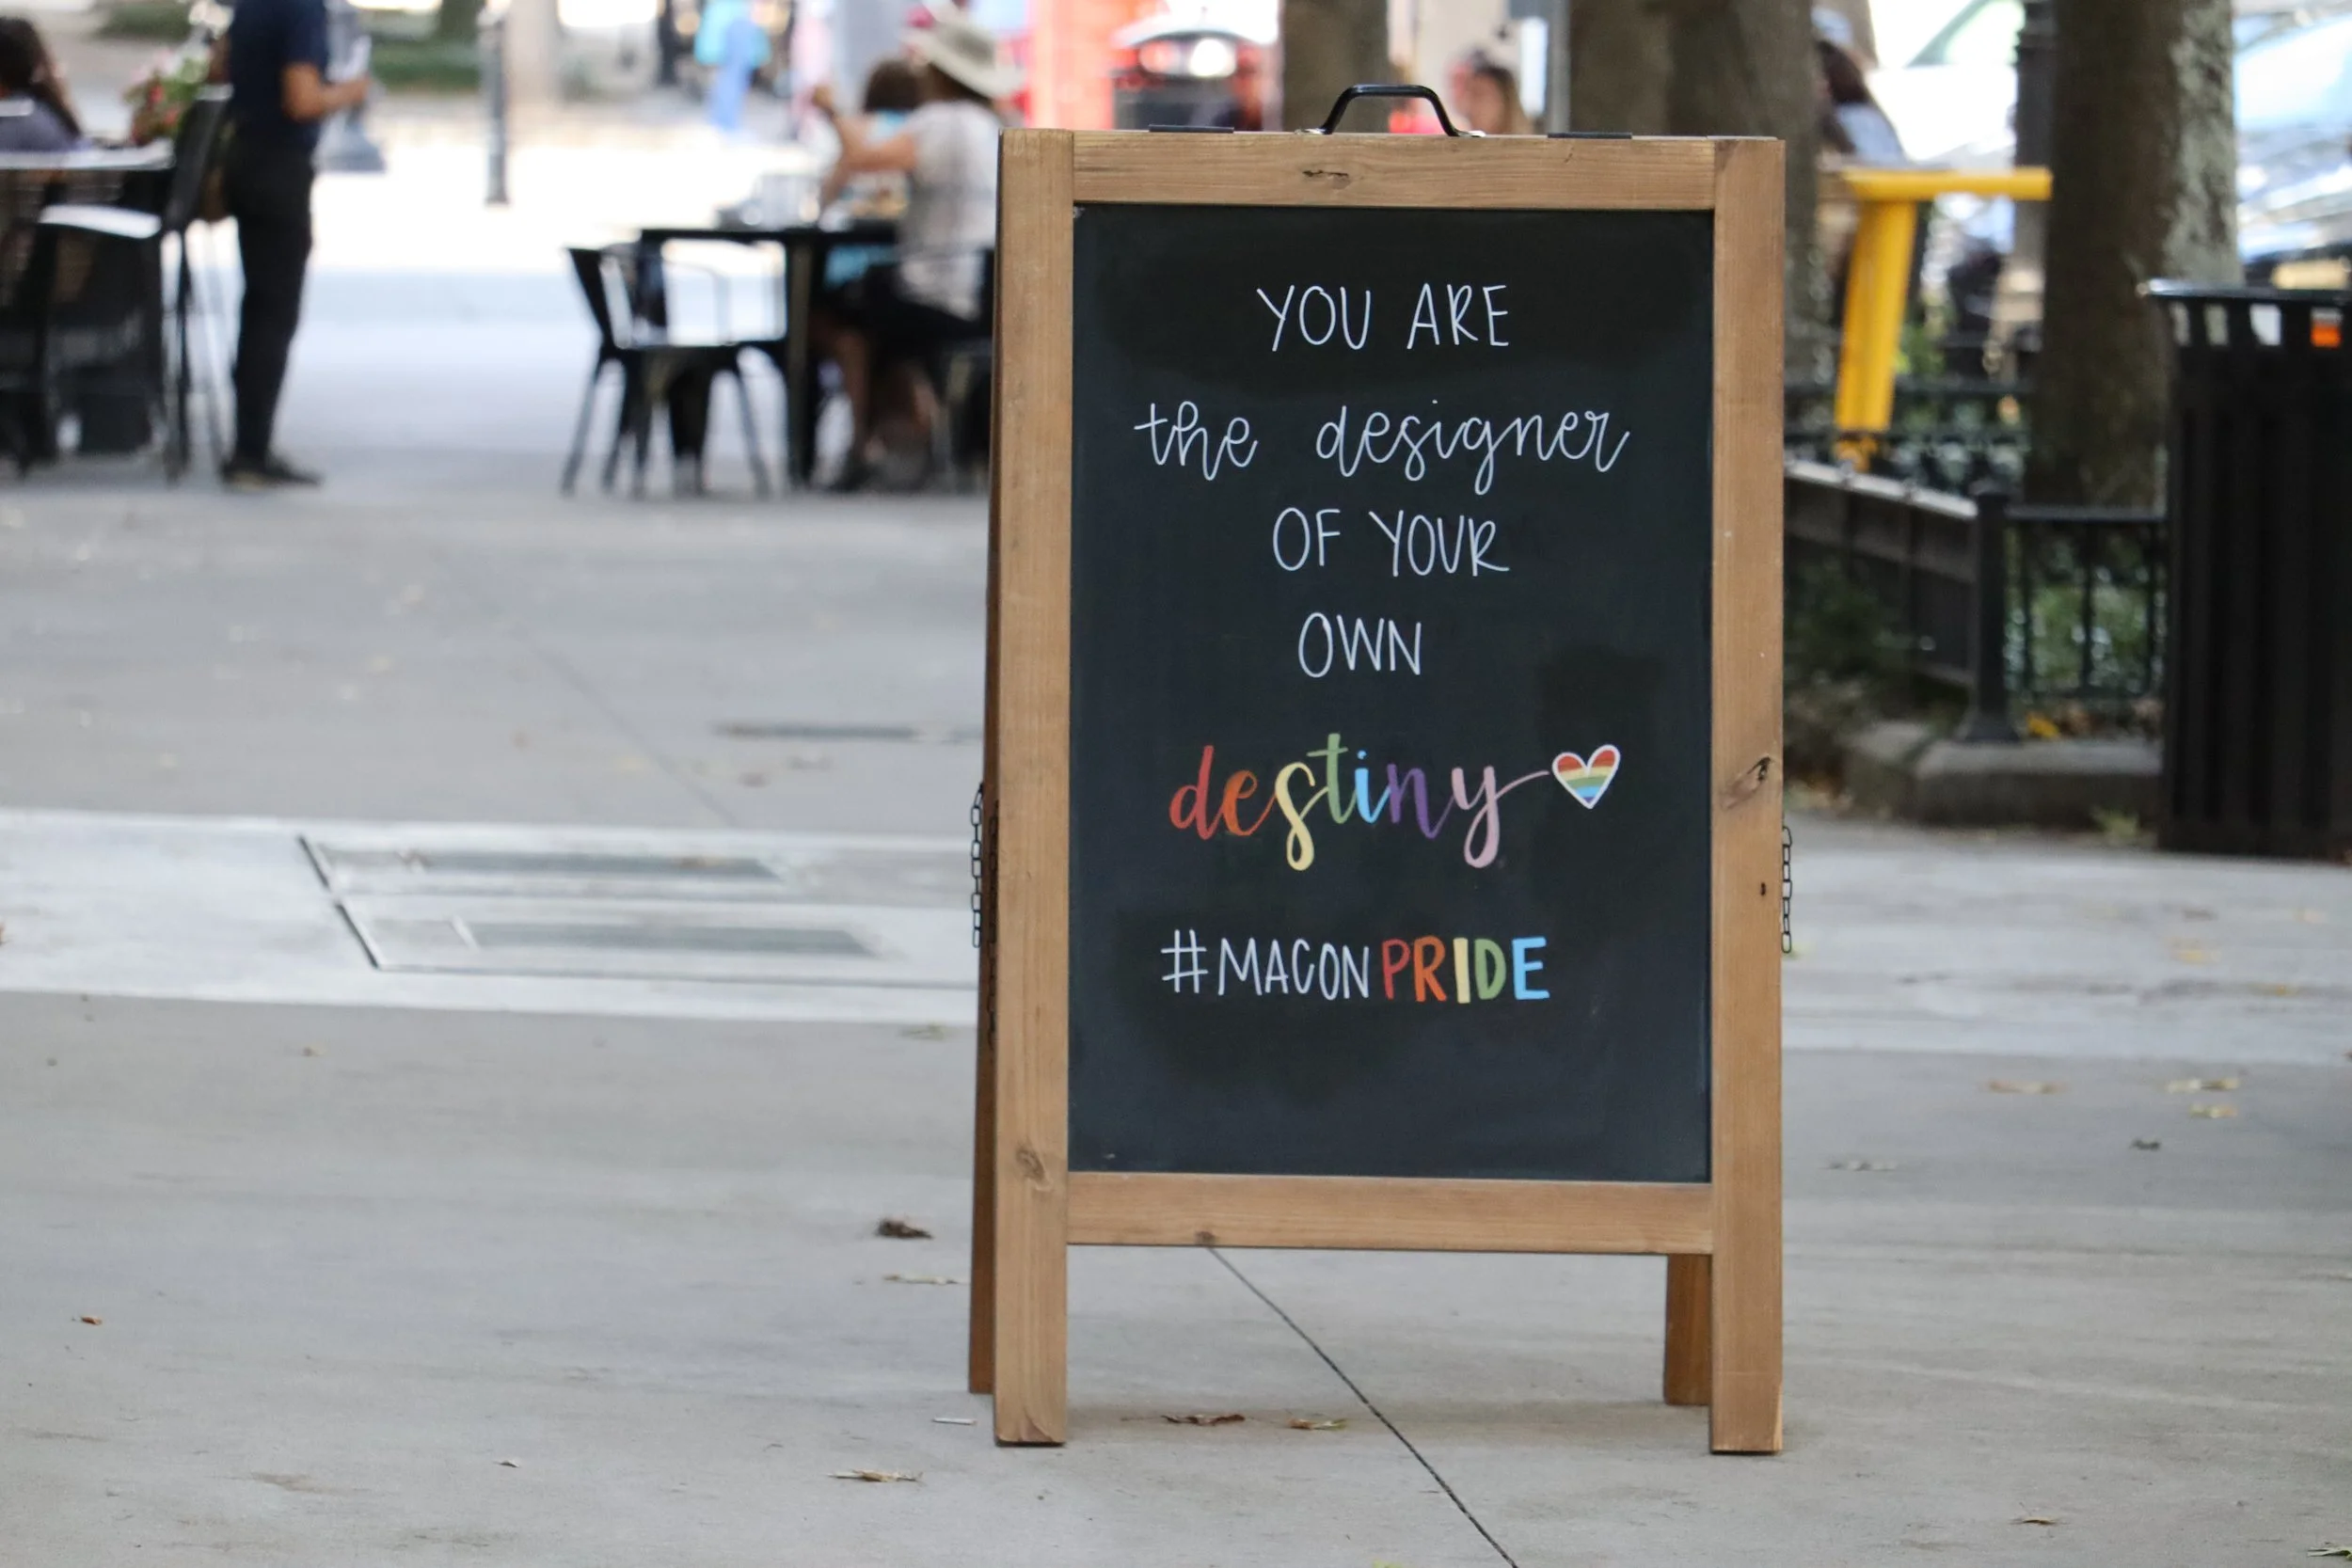 YOU ARE
the designer
OF YOUR
OWN
destiny
#MACONPRIDE